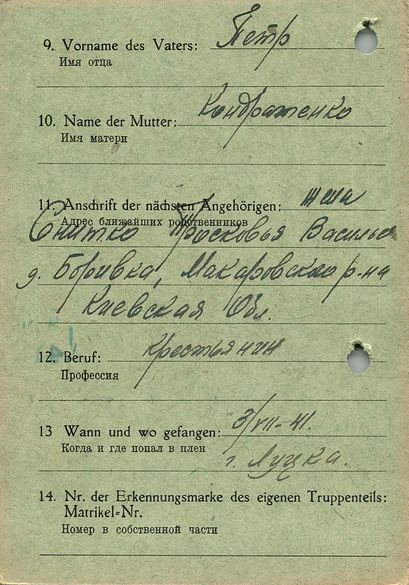 9. Vorname des Vaters: Петр
Имя отца
10. Name der Mutter: Кондратенко
Имя матери
11. Anschrift der nächsten Angehörigen: жена
Адрес ближайших родственников
Снитко Просковья Василье
д. Боривка, Макаровского р-на
Киевская Обл.
12. Beruf: крестьянин
Профессия
13 Wann und wo gefangen: 3/VII-41.
Когда и где попал в плен
г. Луцка.
14. Nr. der Erkennungsmarke des eigenen Truppenteils:
Matrikel-Nr.
Номер в собственной части